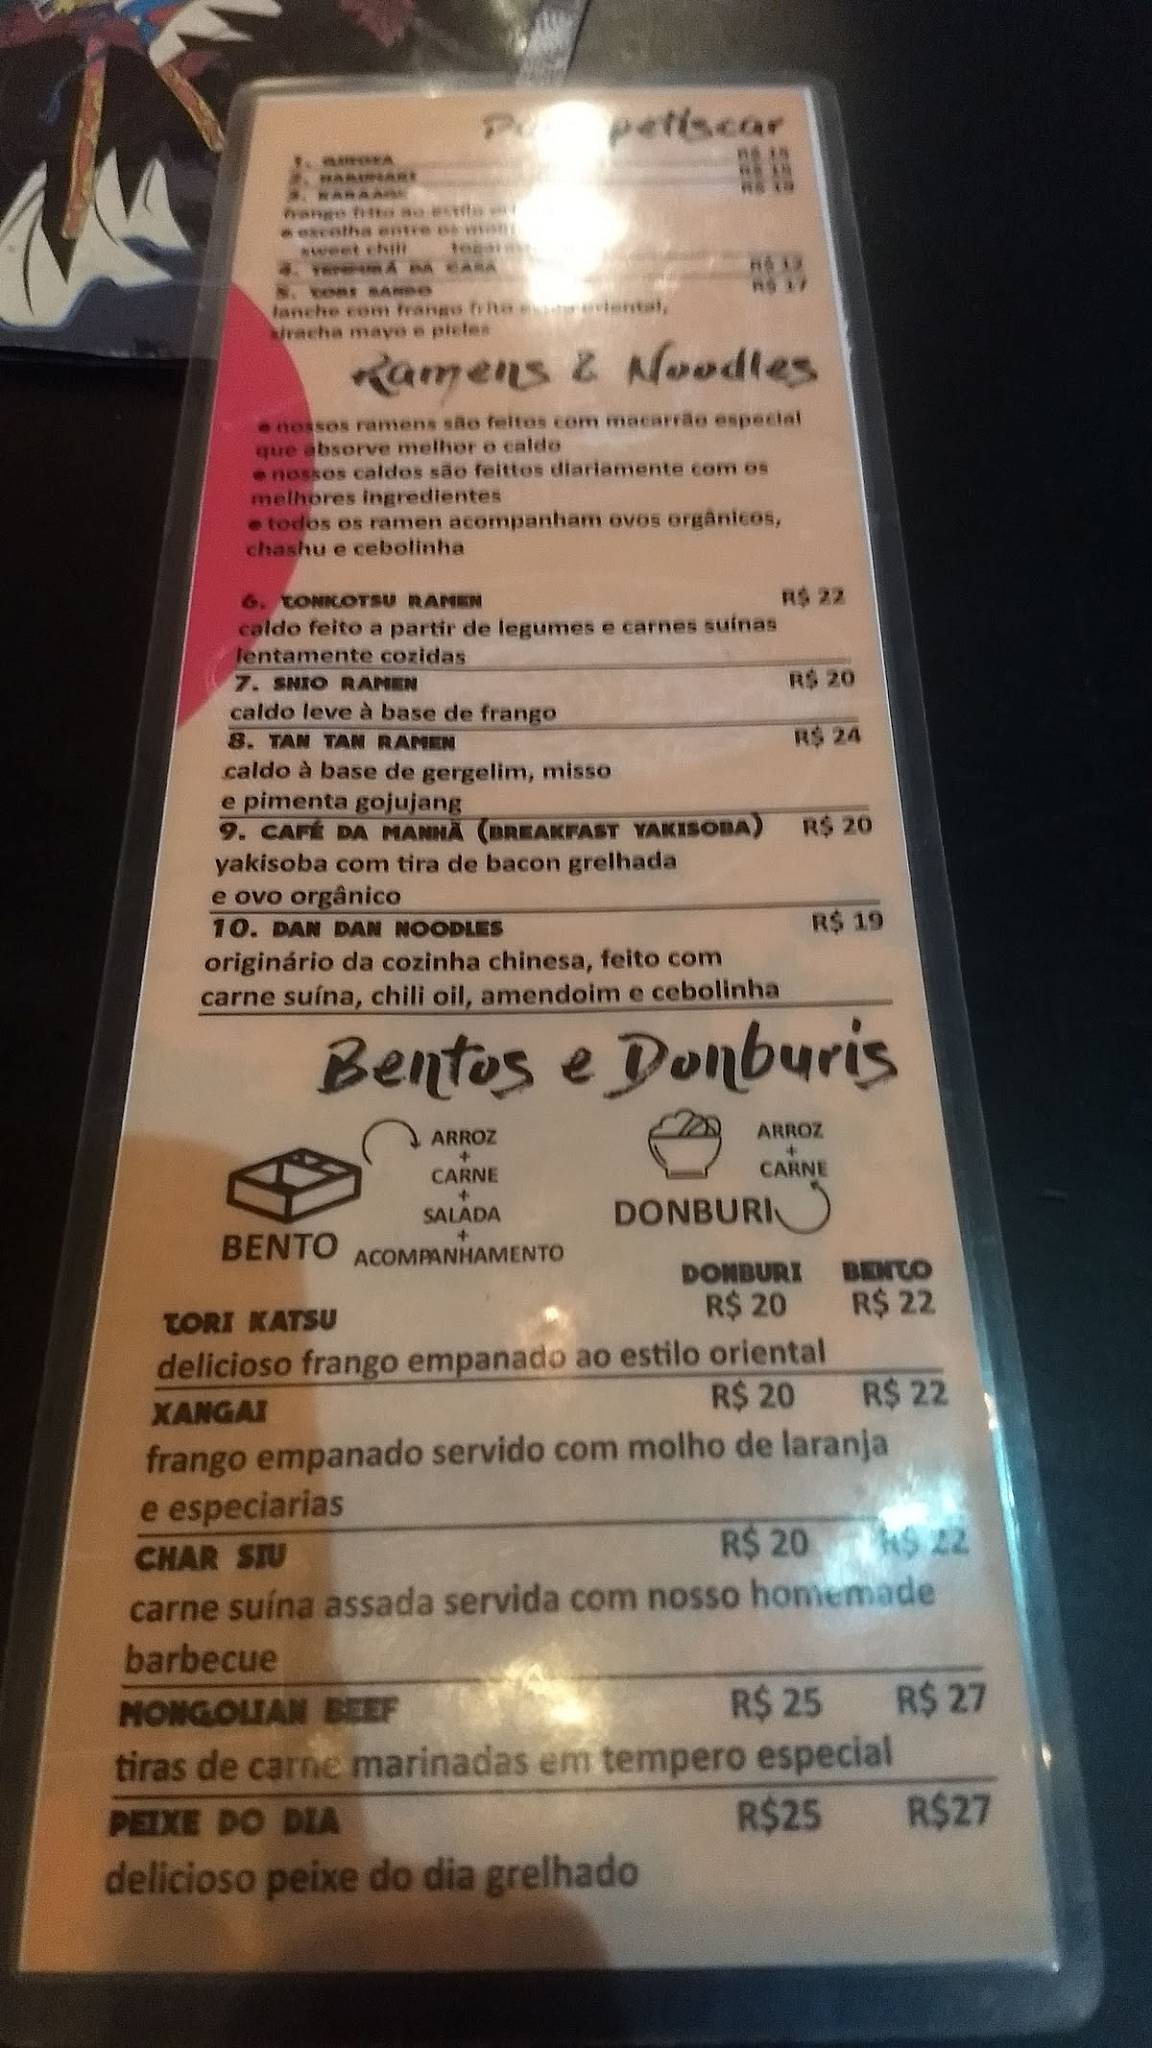 petiscar
1. GUIOZA
2. HARUMAKI
3. KARAAGE
frango frito ao estilo
e escolha entre os
sweet chili
4. TEMPURÁ DA CASA
5. TORI SANDO R$ 17
lanche com frango frito oriental,
siracha mayo e picles
Ramens & Noodles
• nossos ramens são feitos com macarrão especial
que absorve melhor o caldo
• nossos caldos são feittos diariamente com os
melhores ingredientes
• todos os ramen acompanham ovos orgânicos,
chashu e cebolinha
6. TONKOTSU RAMEN R$ 22
caldo feito a partir de legumes e carnes suínas
lentamente cozidas
7. SHIO RAMEN R$ 20
caldo leve à base de frango
8. TAN TAN RAMEN R$ 24
caldo à base de gergelim, misso
e pimenta gojujang
9. CAFÉ DA MANHÃ (BREAKFAST YAKISOBA) R$ 20
yakisoba com tira de bacon grelhada
e ovo orgânico
10. DAN DAN NOODLES R$ 19
originário da cozinha chinesa, feito com
carne suína, chili oil, amendoim e cebolinha
Bentos e Donburis
BENTO
ARROZ
+
CARNE
+
SALADA
+
ACOMPANHAMENTO
DONBURI
ARROZ
+
CARNE
DONBURI BENTO
TORI KATSU R$ 20 R$ 22
delicioso frango empanado ao estilo oriental
XANGAI R$ 20 R$ 22
frango empanado servido com molho de laranja
e especiarias
CHAR SIU R$ 20 R$ 22
carne suína assada servida com nosso homemade
barbecue
MONGOLIAN BEEF R$ 25 R$ 27
tiras de carne marinadas em tempero especial
PEIXE DO DIA R$25 R$27
delicioso peixe do dia grelhado